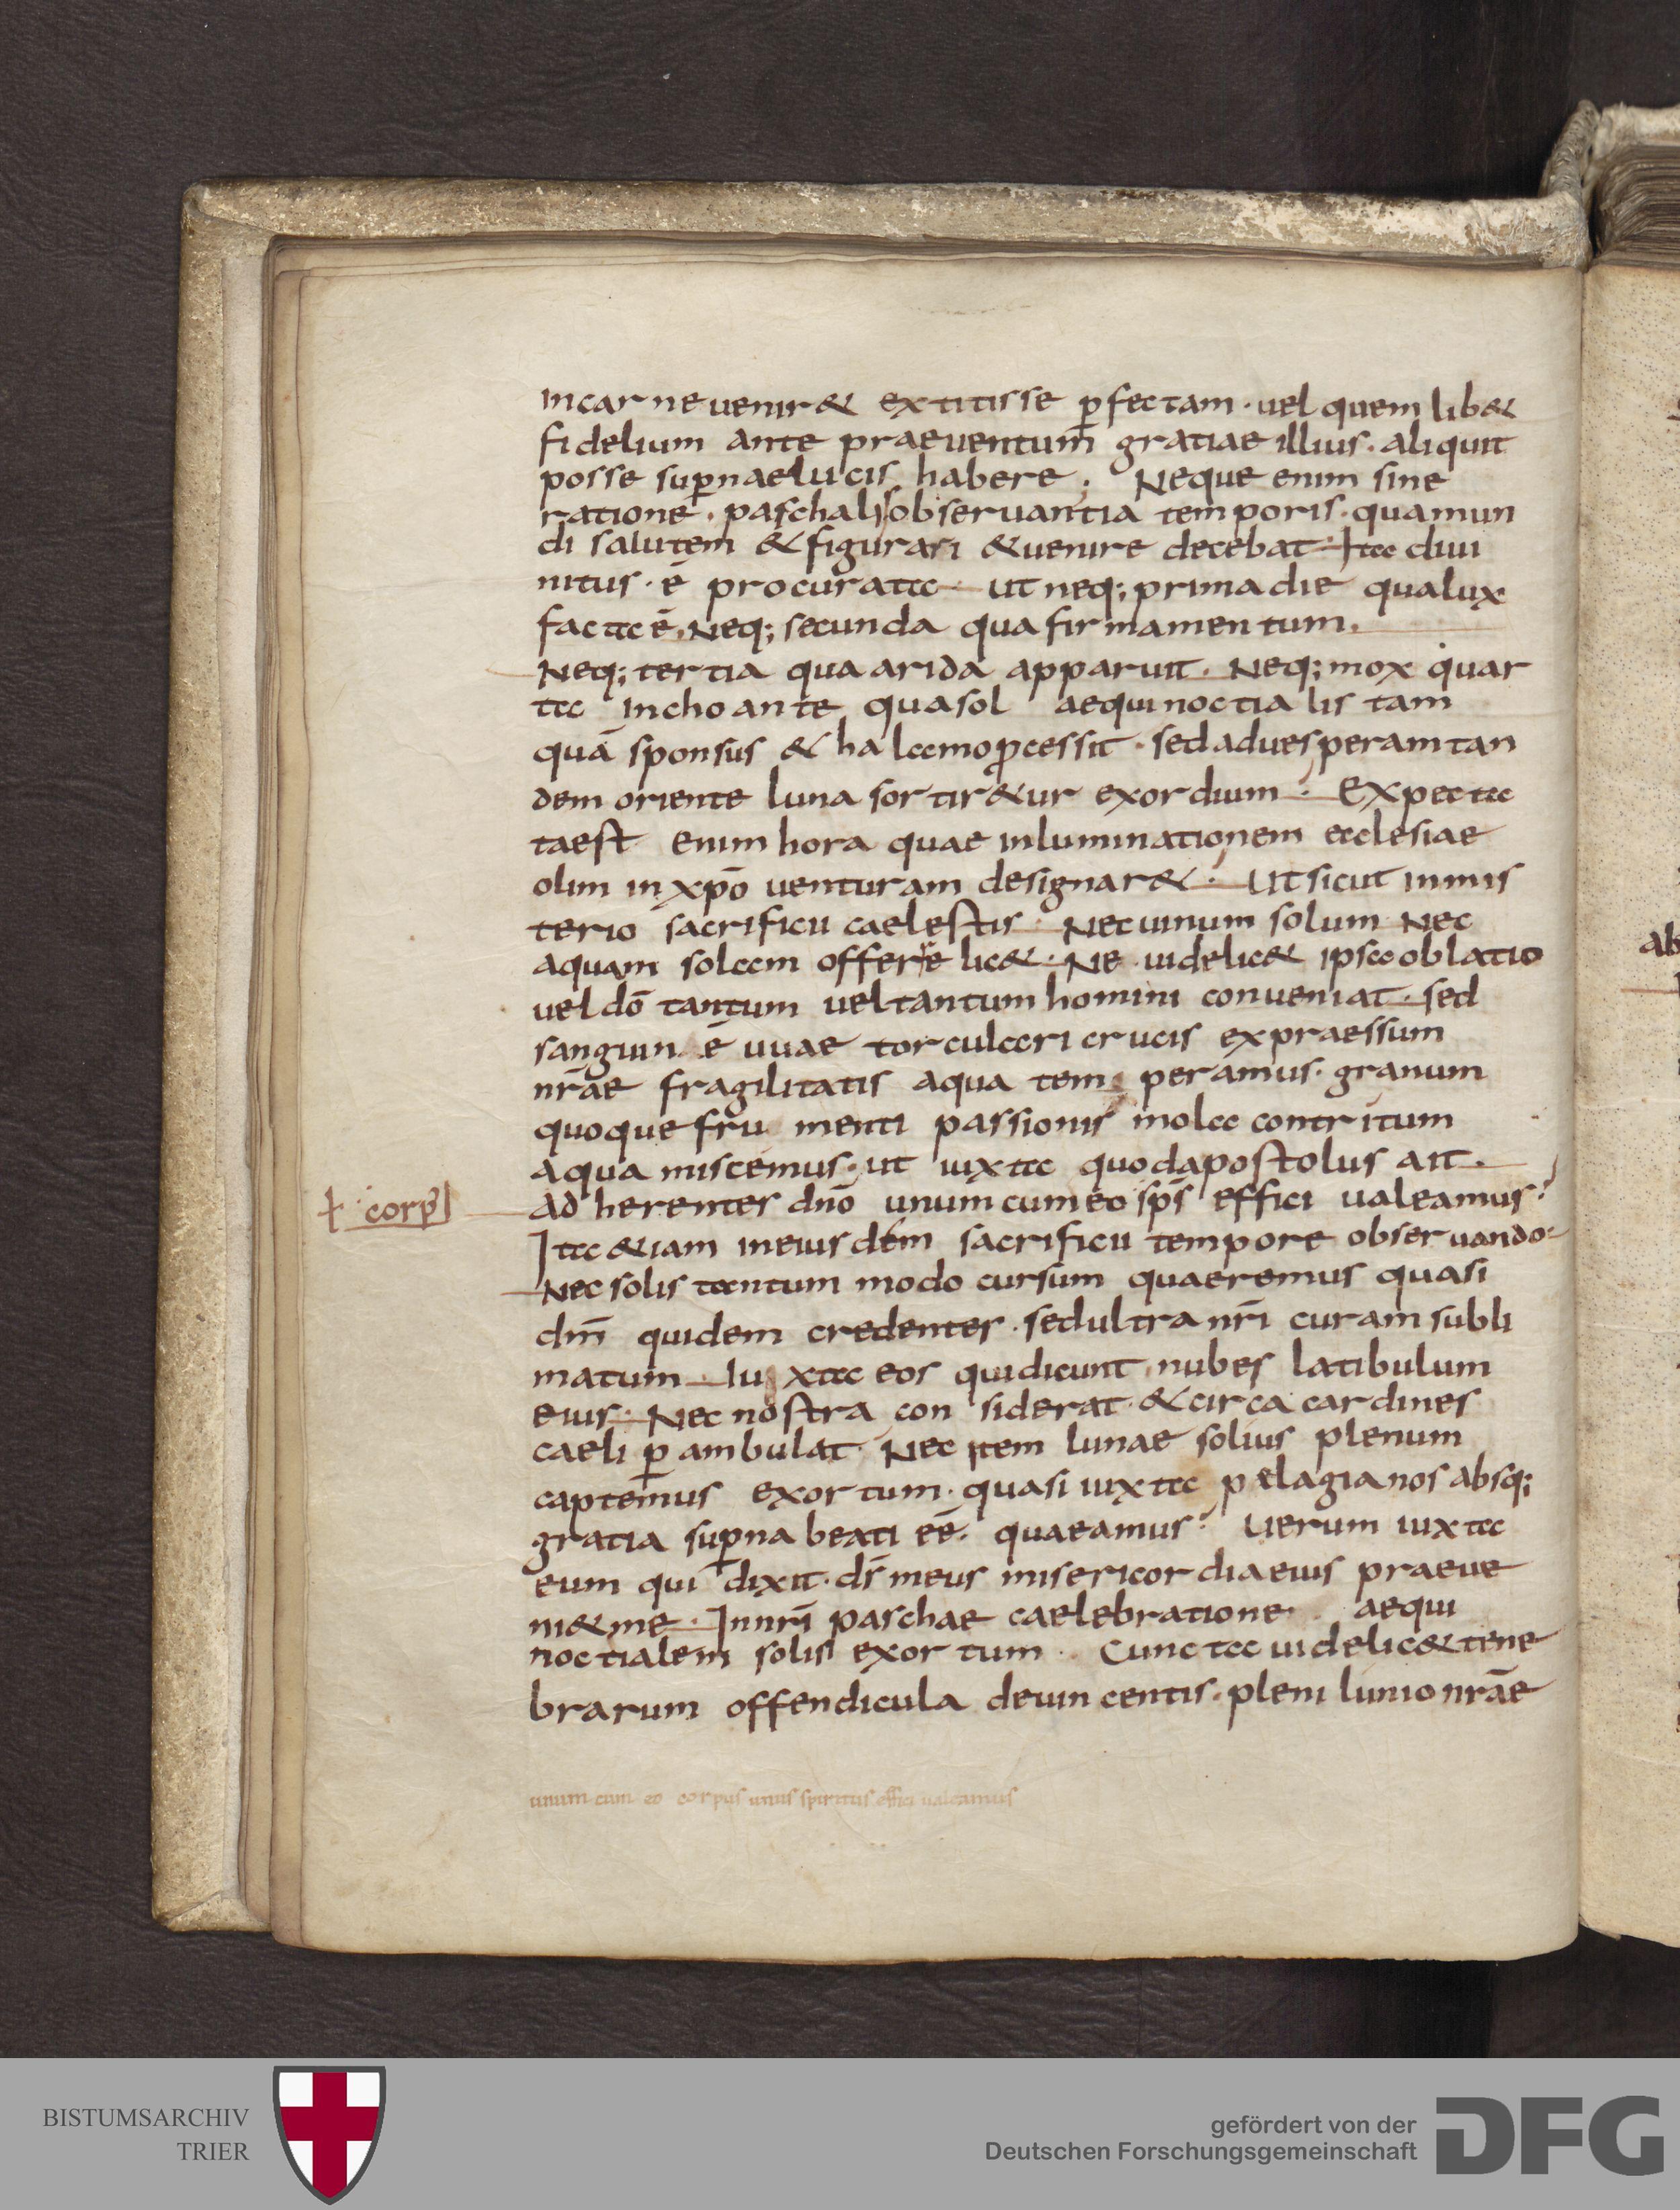 incarne uenir& extitisse ꝑfectam · uel quem lib&
fidelium ante praeuentum̄ gratiae illius · aliquit
posse suꝑnae lucis habere ; Neque enim sine
ratione · paschalis obseruantia temporis · qua mun
di salutem & figurari & uenire decebat · Ita diui
nitus · ē procurata · ut neq; prima die qua lux
facta ē, Neq; secunda qua firmamentum.
Neq; tertia qua arida apparuit · Neq; mox quar
ta inchoante qua sol aequinoctialis tam
quā sponsus & hala mo ꝓcessit · sed ad uesperam tan
dem oriente luna sortir&ur exordium · Expecta
ta est enim hora quae inluminationem ecclesiae
olim in xp̄o uenturam designar& · Ut sicut in mis
terio sacrificii caelestis · Nec uinum solum Nec
aquam solam offerre lic& · Ne uidelic& ipsa oblatio
uel dō tantum uel tantum homini conueniat · sed
sanguin ē uuae torculari crucis expraessum
nr̄ae fragilitatis aqua temperamus · granum
quoque frumenti passionis mola contritum
aqua miscemus · ut iuxta quod apostolus ait.
Ad herentes dn̄o unum cum eo sp̄s effici ualeamus ·
⸸ corpꝰ
Ita &iam in eiusdem sacrificii tempore obseruando ·
Nec solis tantum modo cursum quaeremus quasi
dn̄m quidem credentes · sed ultra nr̄i curam subli
matum · Iuxta eos qui dicunt nubes latibulum
eius · Nec nostra considerat · & circa cardines
caeli ꝑambulat · Nec item lunae solius plenum
captemus exortum · quasi iuxta pelagianos absq;
gratia suꝑna beati eē · quaeamus · Uerum iuxta
eum qui dixit · ds̄ meus misericordia eius praeue
ni& me · In nr̄i paschae caelebratione · aequi
noctialem solis exortum · Cuncta uidelic& tene
brarum offendicula deuincentis · plenilunio nr̄ae
unum cum eo corpus unus spiritus effici ualeamus
ab
BISTUMSARCHIV
TRIER
gefördert von der
Deutschen Forschungsgemeinschaft
DFG